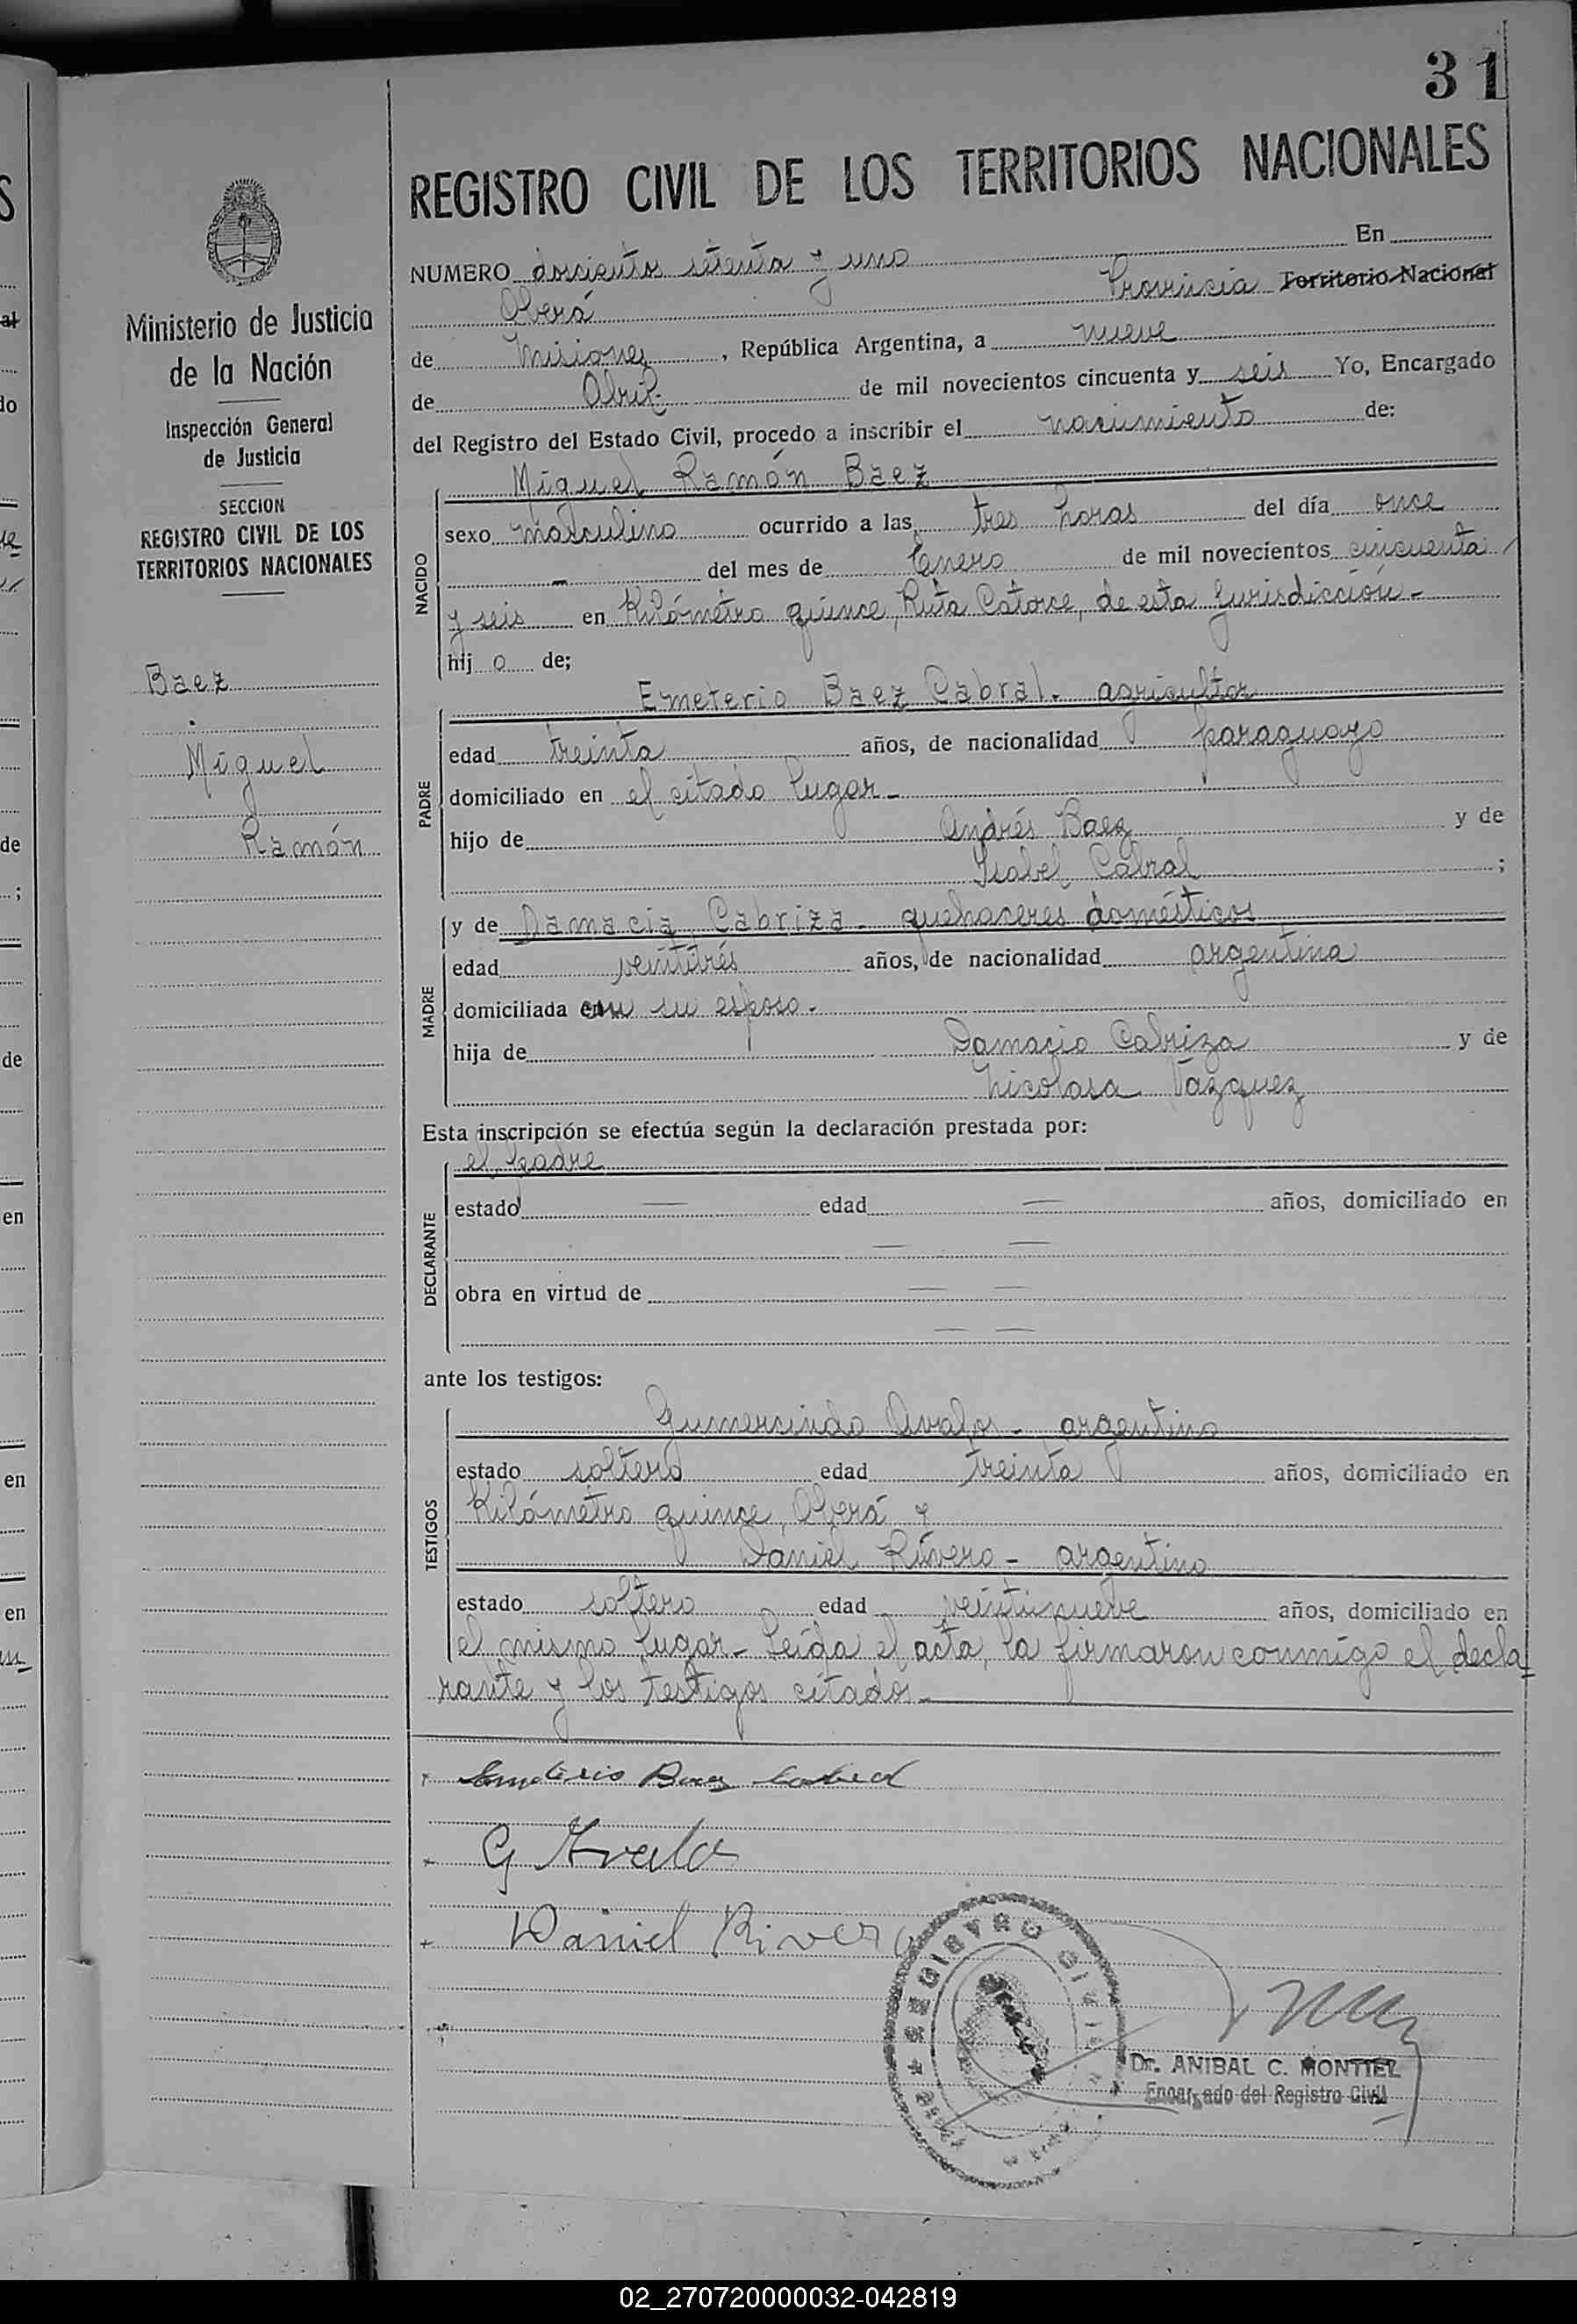 31
REGISTRO CIVIL DE LOS TERRITORIOS NACIONALES
Ministerio de Justicia
de la Nación
Inspección General
de Justicia
SECCION
REGISTRO CIVIL DE LOS
TERRITORIOS NACIONALES
Baez
Miguel
Ramón
NUMERO doscientos setenta y uno En
Oberá Provincia Territorio Nacional
de Misiones, República Argentina, a nueve
de Abril de mil novecientos cincuenta y seis Yo, Encargado
del Registro del Estado Civil, procedo a inscribir el nacimiento de:
NACIDO
Miguel Ramón Baez
sexo masculino ocurrido a las tres horas del día once
— del mes de Enero de mil novecientos cincuenta
y seis en Kilómetro quince, Ruta Catorce, de esta Jurisdicción.-
hij o de;
PADRE
Emeterio Baez Cabral. agricultor
edad treinta años, de nacionalidad paraguayo
domiciliado en el citado lugar-
hijo de Andrés Baez y de
Isabel Cabral ;
MADRE
y de Damacia Cabriza - quehaceres domésticos
edad veintitrés años, de nacionalidad argentina
domiciliada con su esposo.
hija de Damacio Cabriza y de
Nicolasa Vazquez
Esta inscripción se efectúa según la declaración prestada por:
DECLARANTE
el padre
estado — edad — años, domiciliado en
— —
obra en virtud de — —
— —
ante los testigos:
TESTIGOS
Gumersindo Avalos - argentino
estado soltero edad treinta años, domiciliado en
Kilómetro quince, Oberá y
Daniel Rivero - argentino
estado soltero edad veintinueve años, domiciliado en
el mismo lugar- Leída el acta, la firmaron conmigo el decla-
rante y los testigos citados.-
Emeterio Baez Cabral
G Avalo
Daniel Rivero
REGISTRO CIVIL
Dr. ANIBAL C. MONTIEL
Encargado del Registro Civil
02_270720000032-042819